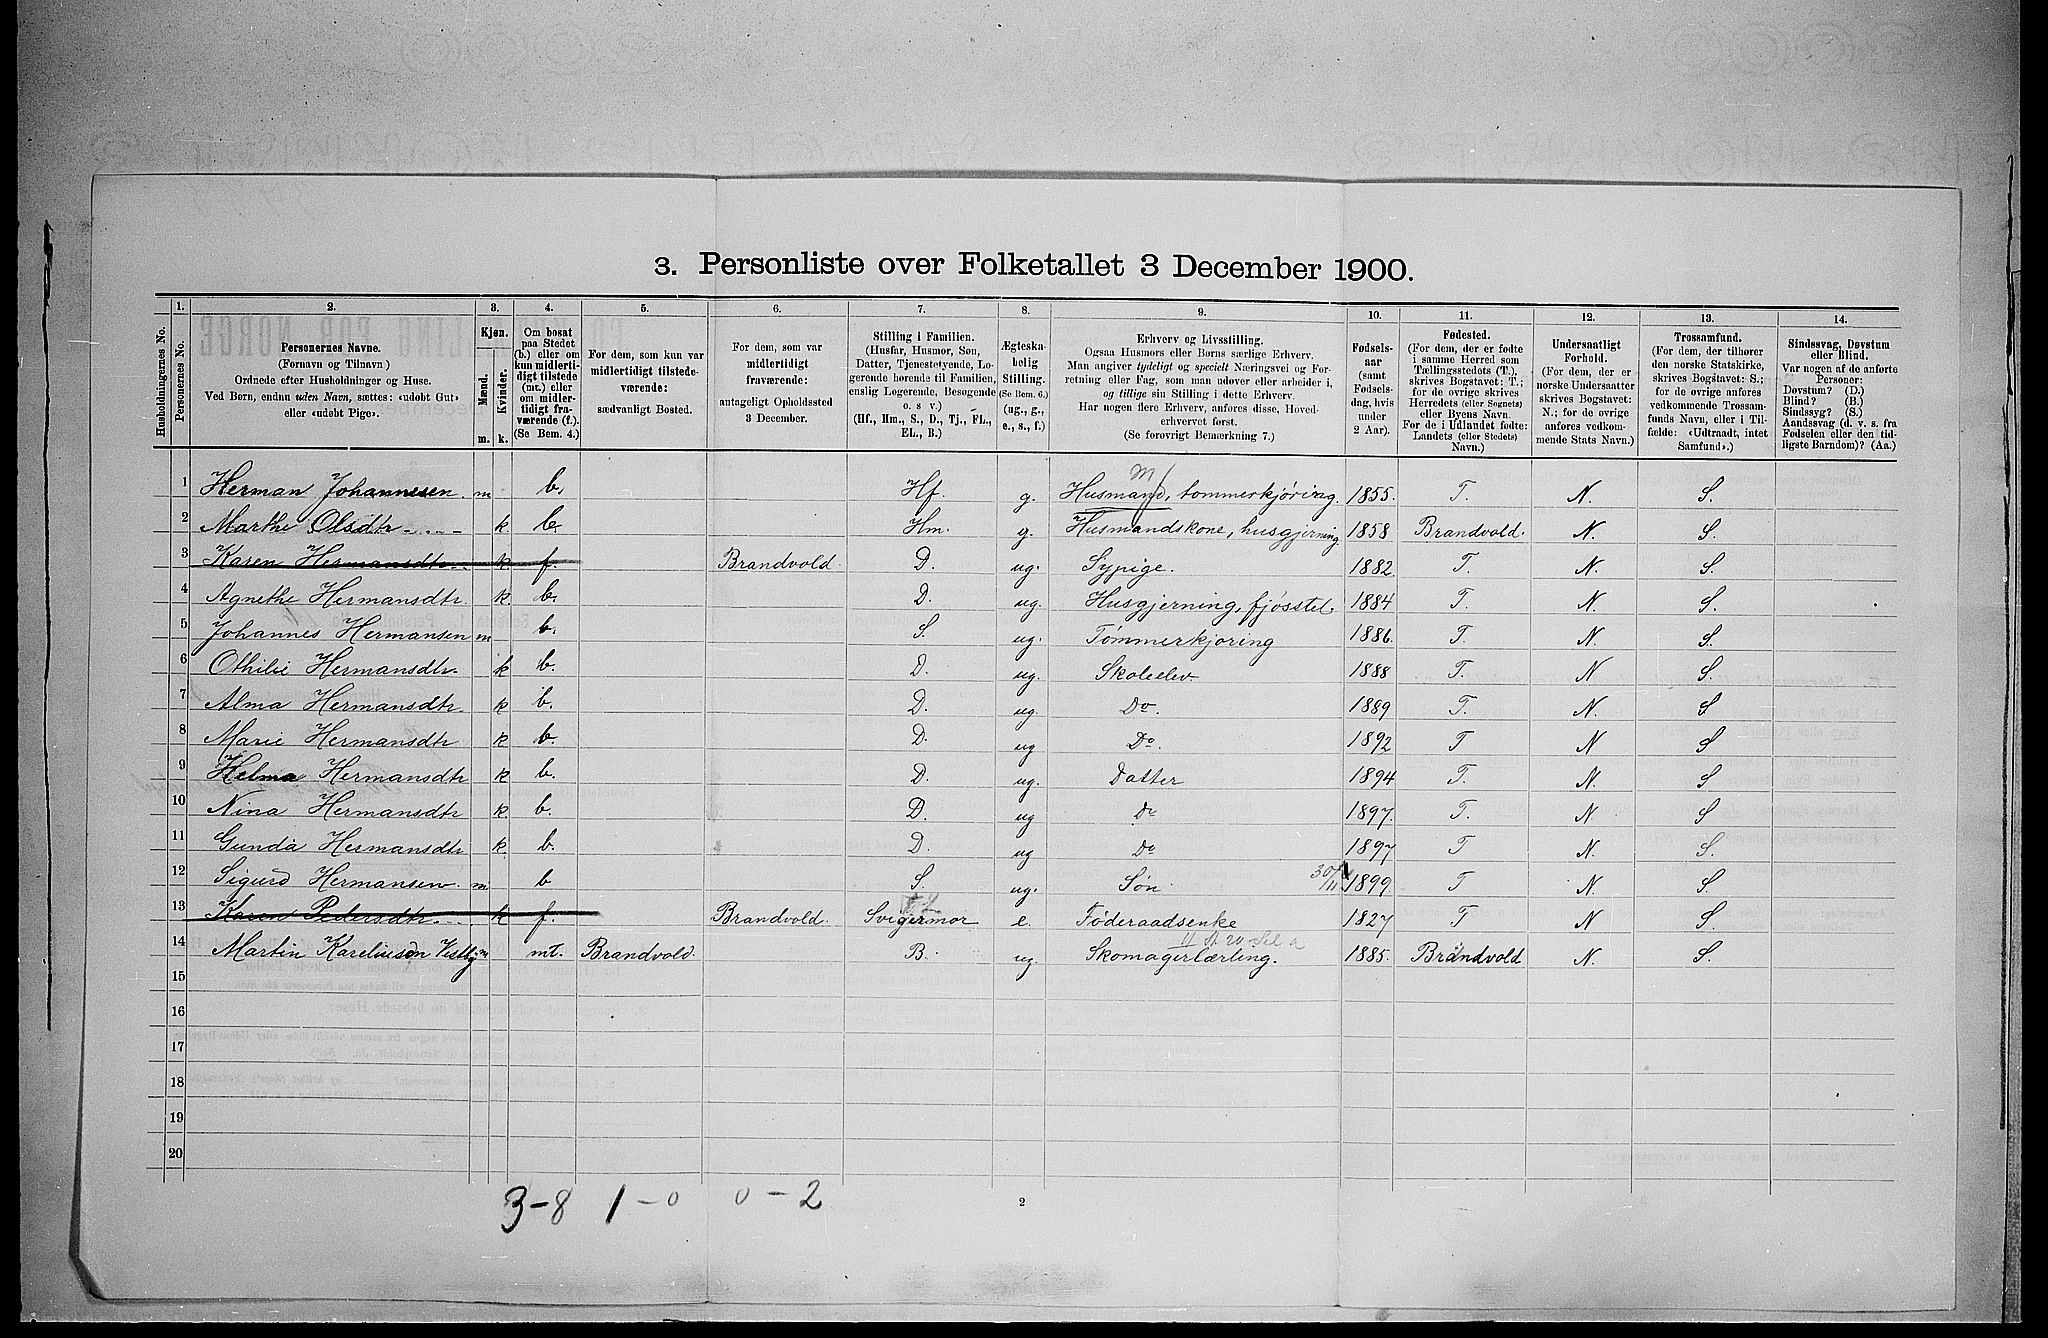 3. Personliste over Folketallet 3 December 1900.
1. 2. 3. 4. 5. 6. 7. 8. 9. 10. 11. 12. 13. 14.
Husholdningernes No.
Personernes No.
Personernes Navne.
(Fornavn og Tilnavn)
Ordnede efter Husholdninger og Huse.
Ved Børn, endnu uden Navn, sættes: «udøbt Gut»
eller «udøbt Pige».
Kjøn.
Mænd.
Kvinder.
m. k.
Om bosat
paa Stedet
(b.) eller om
kun midlerti-
digt tilstede
(mt.) eller
om midler-
tidigt fra-
værende (f.).
(Se Bem. 4.)
For dem, som kun var
midlertidigt tilstede-
værende:
sædvanligt Bosted.
For dem, som var
midlertidigt
fraværende:
antageligt Opholdssted
3 December.
Stilling i Familien.
(Husfar, Husmor, Søn,
Datter, Tjenestetyende, Lo-
gerende hørende til Familien,
enslig Logerende, Besøgende
o. s v.)
(Hf., Hm., S., D., Tj., FL.,
EL., B.)
Ægteska-
belig
Stilling.
(Se Bem. 6.)
(ug., g.,
e., s., f.)
Erhverv og Livsstilling.
Ogsaa Husmors eller Børns særlige Erhverv.
Man angiver tydeligt og specielt Næringsvei og For-
retning eller Fag, som man udøver eller arbeider i,
og tillige sin Stilling i dette Erhverv.
Har nogen flere Erhverv, anføres disse, Hoved-
erhvervet først.
(Se forøvrigt Bemærkning 7.)
Fødsels-
aar
(samt
Fødsels-
dag, hvis
under
2 Aar).
Fødested.
(For dem, der er fødte
i samme Herred som
Tællingsstedets (T.),
skrives Bogstavet: T.;
for de øvrige skrives
Herredets (eller Sognets)
eller Byens Navn.
For de i Udlandet fødte:
Landets (eller Stedets)
Navn.)
Undersaatligt
Forhold.
(For dem, der er
norske Undersaatter
skrives Bogstavet:
N.; for de øvrige
anføres vedkom-
mende Stats Navn.)
Trossamfund.
(For dem, der tilhører
den norske Statskirke,
skrives Bogstavet: S.;
for de øvrige anføres
vedkommende Trossam-
funds Navn, eller i Til-
fælde: «Udtraadt, intet
Samfund».)
Sindssvag, Døvstum
eller Blind.
Var nogen af de anførte
Personer:
Døvstum? (D.)
Blind? (B.)
Sindssyg? (S.)
Aandssvag (d. v. s. fra
Fødselen eller den tid-
ligste Barndom)? (Aa.)
1 Herman Johannesen. m b. Hf. g. Husmand, tømmerkjøring. 1855. T. N. S.
2 Marthe Olsdtr k. b. Hm. g. Husmandskone, husgjerning. 1858 Brandvold. N. S.
3 Karen Hermansdtr. k. f. Brandvold. D. ug. Sypige. 1882. T. N. S.
4 Agnethe Hermansdtr. k. b. D. ug. Husgjerning, fjøsstel. 1884 T. N. S.
5 Johannes Hermansen m b. S. ug. Tømmerkjøring 1886. T. N. S.
6 Othilie Hermansdtr. k b. D. ug. Skoleelev. 1888 T. N S.
7 Alma Hermansdtr. k b. D. ug. Do. 1889 T. N. S
8 Marie Hermansdtr k b. D. ug Do. 1892 T N S
9 Helma Hermansdtr k b. D. ug. Datter 1894 T. N. S
10 Nina Hermansdtr k. b. D. ug Do 1897. T. N S
11 Gunda Hermansdtr k. b. D. ug Do 1897 T N. S.
12 Sigurd Hermansen. m b S. ug. Søn. 30/11 1899. T N. S
13 Karen Pedersdtr. k f. Brandvold. Svigermor e. Føderaadsenke 1827 T N S.
14 Martin Kareliusson Vestby m mt. Brandvold. B. ug. Skomagerlærling. 1885. Brandvold N. S.
15
16
17
18
19
20
3-8 1-0 0-2
2